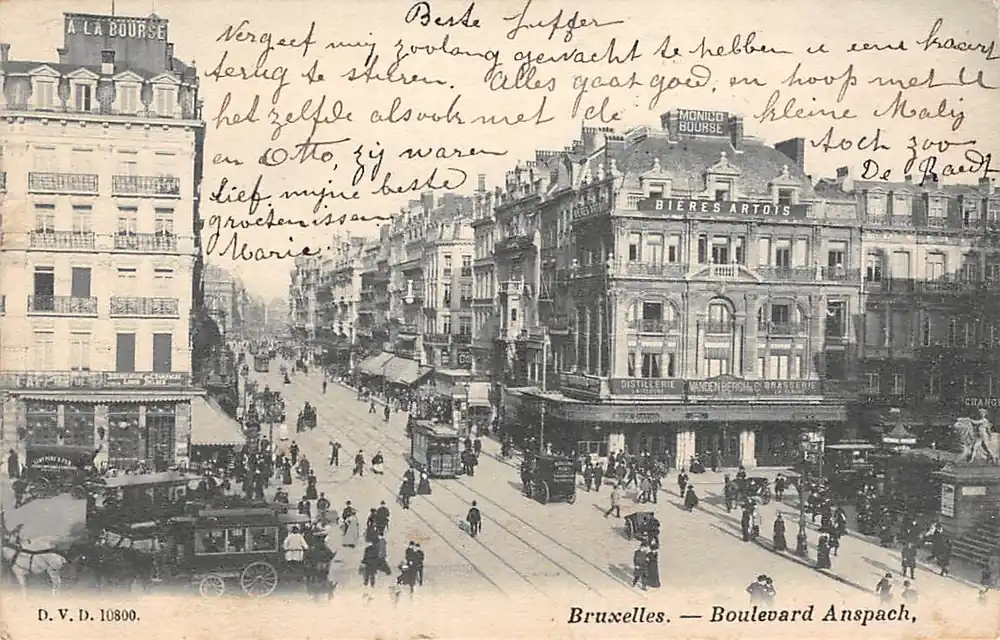 Beste Juffer
Vergeef mij zoolang gewacht te hebben u eene kaart
terug te sturen. Alles gaat goed, en hoop met U
het zelfde alsook met de kleine Malij
en Otto, zij waren toch zoo
lief. mijne beste De Raedt
groetenissen
Marie
A LA BOURSE
MONICO
BOURSE
BIÈRES ARTOIS
DISTILLERIE VANDEN BERGH & Co BRASSERIE
CHANGE
D. V. D. 10800.
Bruxelles. — Boulevard Anspach,